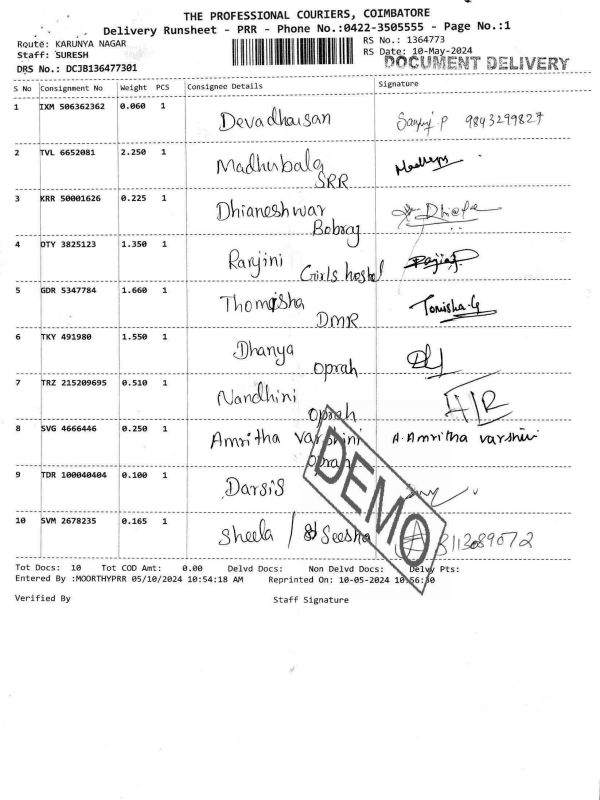 THE PROFESSIONAL COURIERS, COIMBATORE
Delivery Runsheet - PRR - Phone No.:0422-3505555 - Page No.:1
Route: KARUNYA NAGAR RS No.: 1364773
Staff: SURESH RS Date: 10-May-2024
DOCUMENT DELIVERY
DRS No.: DCJB136477301
S No Consignment No Weight PCS Consignee Details Signature
1 IXM 506362362 0.060 1
Devadharsan 9843299827
2 TVL 6652081 2.250 1
Madhubala
SRR
3 KRR 50001626 0.225 1
Dhianeshwar
Bobraj
4 OTY 3825123 1.350 1
Ranjini
Girls hostel
5 GDR 5347784 1.660 1
Thomisha Tomisha.G
DMR
6 TKY 491980 1.550 1
Dhanya
oprah
7 TRZ 215209695 0.510 1
Nandhini H/R
oprah
8 SVG 4666446 0.250 1
Amritha varshini A. Amritha varshini
oprah
DEMO
9 TDR 100040404 0.100 1
Darsis
10 SVM 2678235 0.165 1
Sheela / Seesha
Tot Docs: 10 Tot COD Amt: 0.00 Delvd Docs: Non Delvd Docs: Delvy Pts:
Entered By :MOORTHYPRR 05/10/2024 10:54:18 AM Reprinted On: 10-05-2024 10:56:30
Verified By Staff Signature